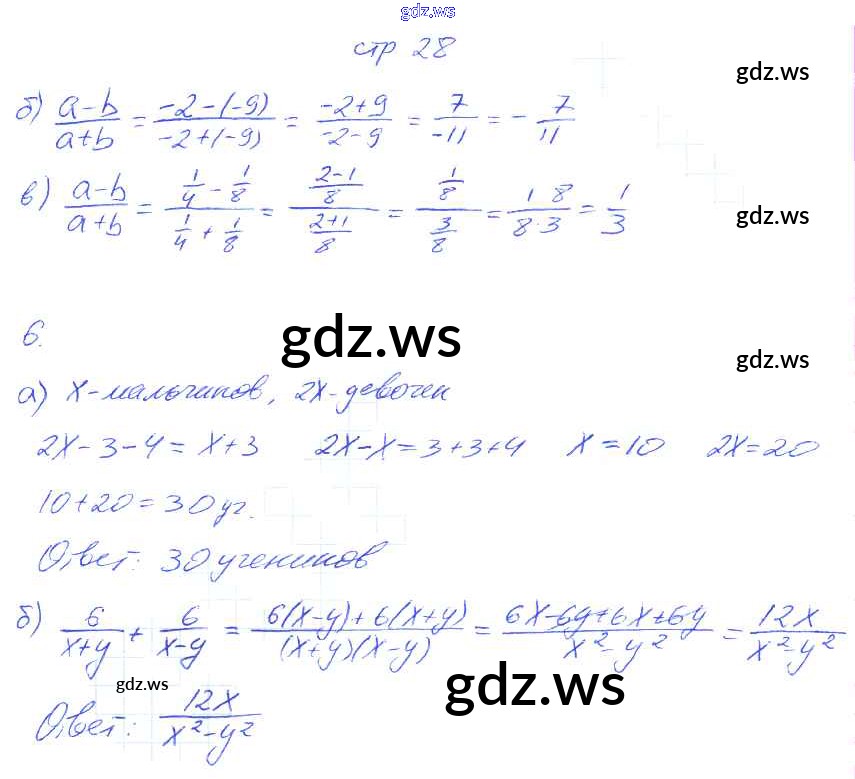 gdz.ws
стр 28
gdz.ws
б) (a-b)/(a+b) = (-2-(-9))/(-2+(-9)) = (-2+9)/(-2-9) = 7/(-11) = - 7/11
в) (a-b)/(a+b) = (1/4 - 1/8)/(1/4 + 1/8) = ((2-1)/8)/((2+1)/8) = (1/8)/(3/8) = (1 8)/(8·3) = 1/3
gdz.ws
6.
gdz.ws
gdz.ws
а) x-мальчиков, 2x-девочек
2x-3-4=x+3 2x-x=3+3+4 x=10 2x=20
10+20=30уг.
Ответ: 30 учеников
б) 6/(x+y) + 6/(x-y) = (6(x-y)+6(x+y))/((x+y)(x-y)) = (6x-6y+6x+6y)/(x²-y²) = 12x/(x²-y²)
gdz.ws
gdz.ws
Ответ: 12x/(x²-y²)